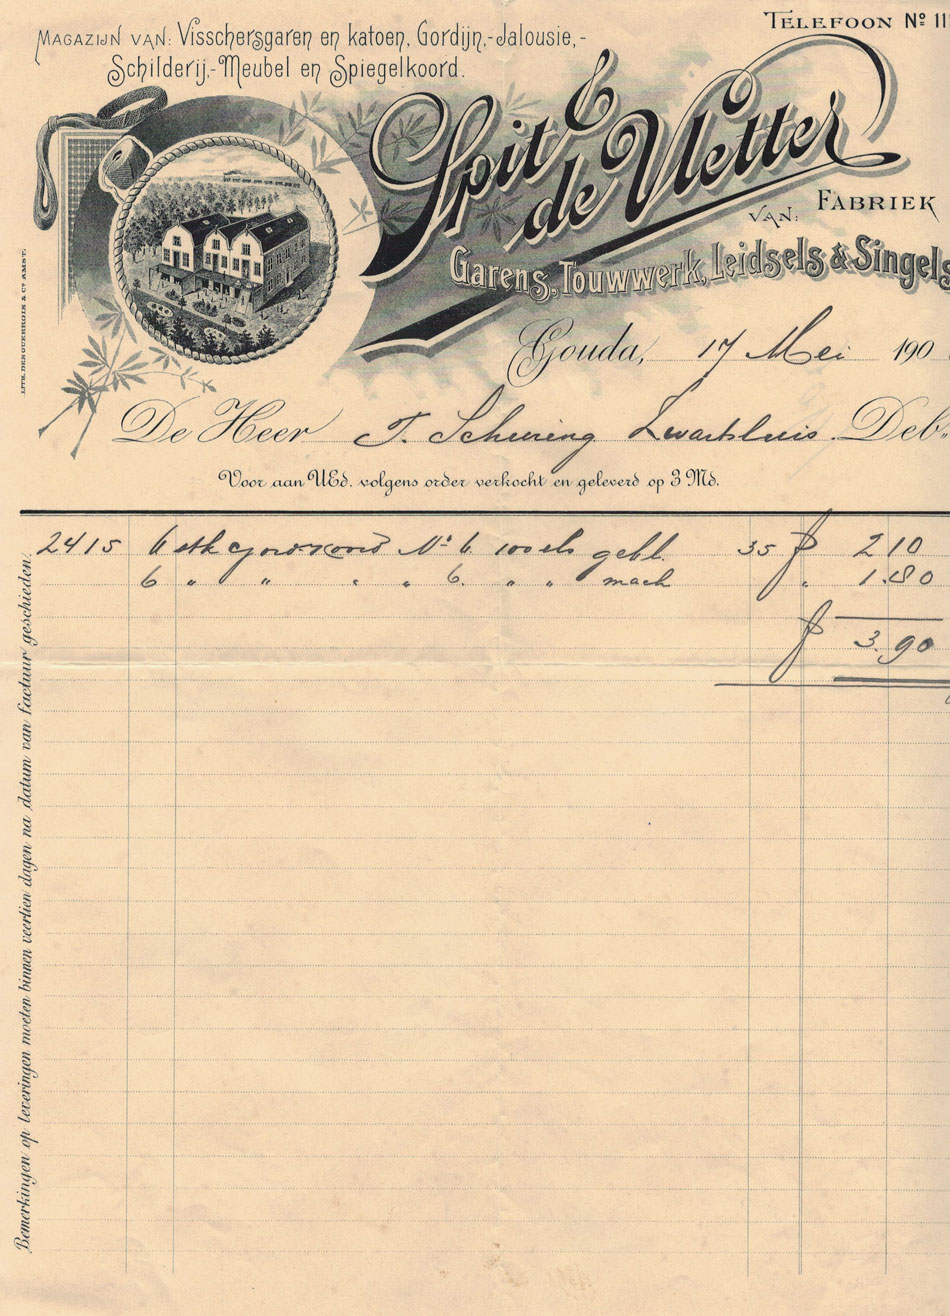 TELEFOON Nº 11
MAGAZIJN VAN: Visschersgaren en katoen, Gordijn,-Jalousie,-
Schilderij,-Meubel en Spiegelkoord.
Spit &
de Vletter
VAN: FABRIEK
Garens, Touwwerk, Leidsels & Singels
LITH. DESGUERROIS & Cº AMST.
Gouda, 17 Mei 190
De Heer T. Scheuring Zwartsluis. Deb.
Voor aan UEd. volgens order verkocht en geleverd op 3 Md.
2415 6 stk Nº 6. 100 els gebl. 35 f 2 10
6 " " " " 6. " " mach " 1.80
f 3.90
Bemerkingen op leveringen moeten binnen veertien dagen na datum van factuur geschieden.